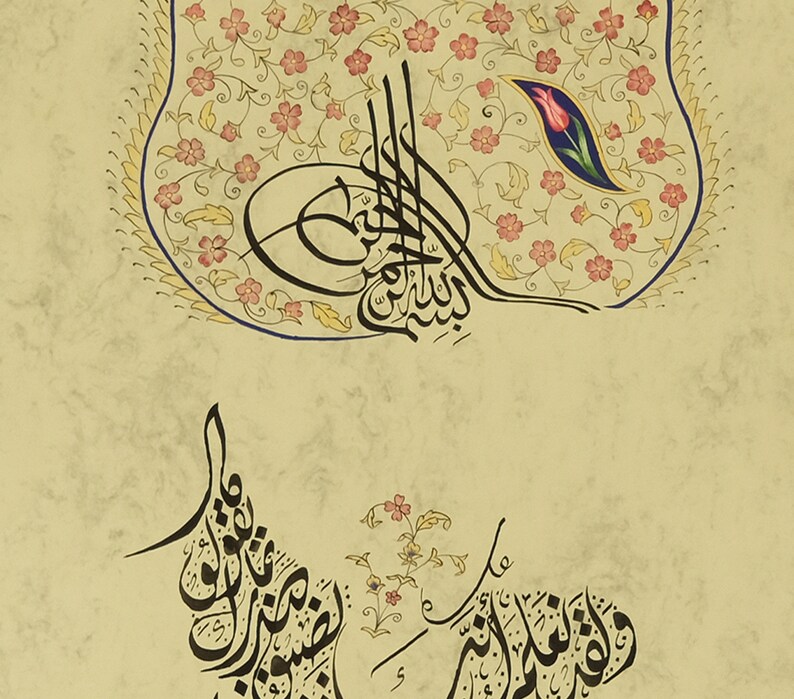 بسم الله الرحمن الرحيم
ولقد نعلم أنك يضيق صدرك بما يقولون